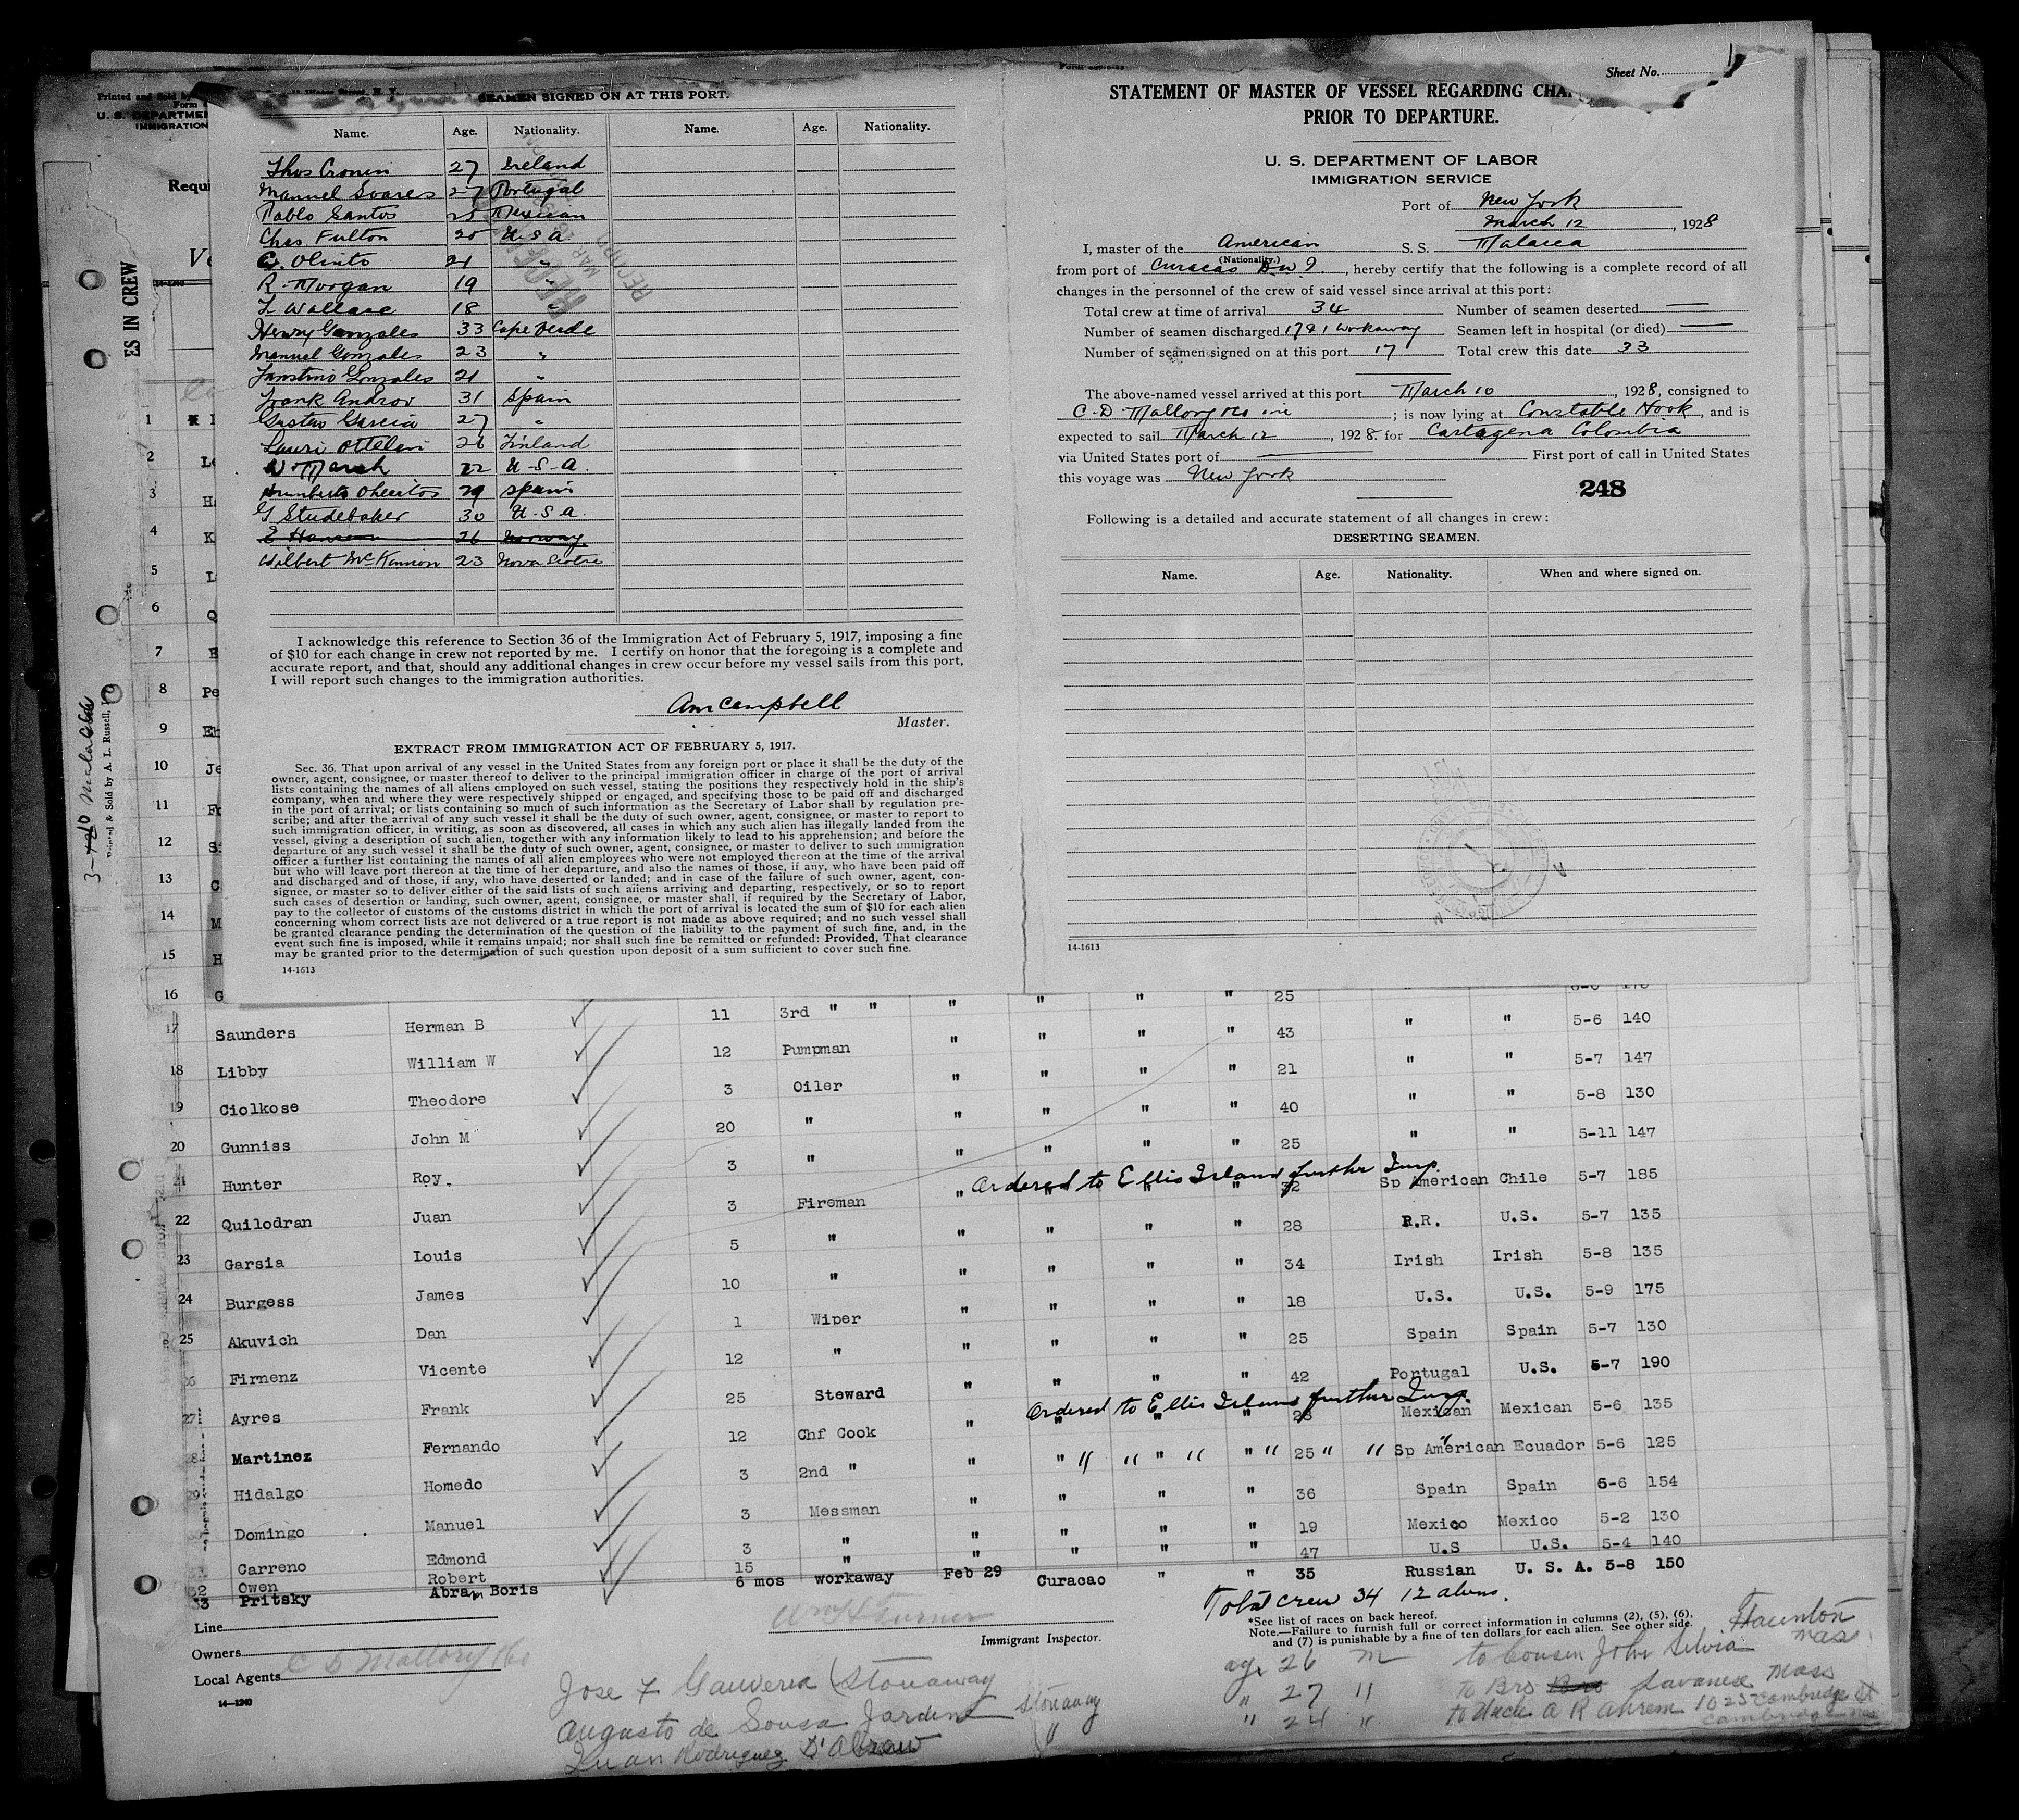 Printed and Sold by
Form
U. S. DEPARTME
IMMIGRATION
Requi
ES IN CREW
SEAMEN SIGNED ON AT THIS PORT.
Name. Age. Nationality. Name. Age. Nationality.
Thos Cronin 27 Ireland
Manuel Soares 27 Portugal
Pablo Santos 25 Mexican
Chas. Fulton 20 U.S.A
C. Olinto 21 "
R. Morgan 19 "
L Wallace 18 "
Henry Gonzales 33 Cape Verde
Manuel Gonzales 23 "
Faustino Gonzales 21 "
Frank Androv 31 Spain
Gustav Garcia 27 "
Lauri Ottelin 26 Finland
W Marsh 22 U-S-A.
Humberto 29 Spain
G Studebaker 30 U.S.A.
E Hansen 26 Norway
Wilbert McKinnon 23 Nova Scotia
I acknowledge this reference to Section 36 of the Immigration Act of February 5, 1917, imposing a fine
of $10 for each change in crew not reported by me. I certify on honor that the foregoing is a complete and
accurate report, and that, should any additional changes in crew occur before my vessel sails from this port,
I will report such changes to the immigration authorities.
Am Campbell
Master.
EXTRACT FROM IMMIGRATION ACT OF FEBRUARY 5, 1917.
Sec. 36. That upon arrival of any vessel in the United States from any foreign port or place it shall be the duty of the
owner, agent, consignee, or master thereof to deliver to the principal immigration officer in charge of the port of arrival
lists containing the names of all aliens employed on such vessel, stating the positions they respectively hold in the ship's
company, when and where they were respectively shipped or engaged, and specifying those to be paid off and discharged
in the port of arrival; or lists containing so much of such information as the Secretary of Labor shall by regulation pre-
scribe; and after the arrival of any such vessel it shall be the duty of such owner, agent, consignee, or master to report to
such immigration officer, in writing, as soon as discovered, all cases in which any such alien has illegally landed from the
vessel, giving a description of such alien, together with any information likely to lead to his apprehension; and before the
departure of any such vessel it shall be the duty of such owner, agent, consignee, or master to deliver to such immigration
officer a further list containing the names of all alien employees who were not employed thereon at the time of the arrival
but who will leave port thereon at the time of her departure, and also the names of those, if any, who have been paid off
and discharged and of those, if any, who have deserted or landed; and in case of the failure of such owner, agent, con-
signee, or master so to deliver either of the said lists of such aliens arriving and departing, respectively, or so to report
such cases of desertion or landing, such owner, agent, consignee, or master shall, if required by the Secretary of Labor,
pay to the collector of customs of the customs district in which the port of arrival is located the sum of $10 for each alien
concerning whom correct lists are not delivered or a true report is not made as above required; and no such vessel shall
be granted clearance pending the determination of the question of the liability to the payment of such fine, and, in the
event such fine is imposed, while it remains unpaid; nor shall such fine be remitted or refunded: Provided, That clearance
may be granted prior to the determination of such question upon deposit of a sum sufficient to cover such fine.
14-1613
Sheet No.
STATEMENT OF MASTER OF VESSEL REGARDING CHA
PRIOR TO DEPARTURE.
U. S. DEPARTMENT OF LABOR
IMMIGRATION SERVICE
Port of New York
March 12, 1928
I, master of the American S. S. Malacca
(Nationality.)
from port of Curacao D W I, hereby certify that the following is a complete record of all
changes in the personnel of the crew of said vessel since arrival at this port:
Total crew at time of arrival 34 Number of seamen deserted
Number of seamen discharged 17 & 1 Workaway Seamen left in hospital (or died)
Number of seamen signed on at this port 17 Total crew this date 33
The above-named vessel arrived at this port March 10, 1928, consigned to
C. D. Mallory; is now lying at Constable Hook, and is
expected to sail March 12, 1928. for Cartagena Colombia
via United States port of First port of call in United States
this voyage was New York
248
Following is a detailed and accurate statement of all changes in crew:
DESERTING SEAMEN.
Name. Age. Nationality. When and where signed on.
14-1613
Printed & Sold by A. L. Russell,
1
2
3
4
5
6
7
8 Pe
9
10 Je
11
12
13
14
15
16 G
17 Saunders Herman B 11 3rd " " " " " " 25
18 Libby William W 12 Pumpman " " " " 43 " " 5-6 140
19 Ciolkose Theodore 3 Oiler " " " " 21 " " 5-7 147
20 Gunniss John M 20 " " " " " 40 " " 5-8 130
21 Hunter Roy. 3 " " " " " 25 " " 5-11 147
Ordered to Ellis Island further Insp.
22 Quilodran Juan 3 Fireman " " " " 32 Sp American Chile 5-7 185
23 Garsia Louis 5 " " " " " 28 R.R. U.S. 5-7 135
24 Burgess James 10 " " " " " 34 Irish Irish 5-8 135
25 Akuvich Dan 1 Wiper " " " " 18 U.S. U.S. 5-9 175
26 Firnenz Vicente 12 " " " " " 25 Spain Spain 5-7 130
27 Ayres Frank 25 Steward " " " " 42 Portugal U.S. 5-7 190
Ordered to Ellis Island further Insp.
28 Martinez Fernando 12 Chf Cook " " " " 28 Mexican Mexican 5-6 135
29 Hidalgo Homedo 3 2nd " " " " " 25 Sp American Ecuador 5-6 125
Domingo Manuel 3 Messman " " " " 36 Spain Spain 5-6 154
Carreno Edmond 3 " " " " " 19 Mexico Mexico 5-2 130
32 Owen Robert 15 " " " " " 47 U.S U.S. 5-4 140
33 Pritsky Abram Boris 6 mos workaway Feb 29 Curacao " " 35 Russian U. S. A. 5-8 150
Total crew 34 12 aliens.
Line
Owners
Local Agents C D Mallory & Co
14—1240
Wm H Turner
Immigrant Inspector.
*See list of races on back hereof.
Note.—Failure to furnish full or correct information in columns (2), (5), (6),
and (7) is punishable by a fine of ten dollars for each alien. See other side.
Jose F Gauveria (Stowaway age 26 m to Cousin John Silvia Taunton Mass
Augusto de Sousa Jardin Stowaway " 27 " to Bro Mass
Juan Rodriguez D'Abreu " " 24 " to Uncle A R Abrem 1025 Cambridge St
Cambridge Mass